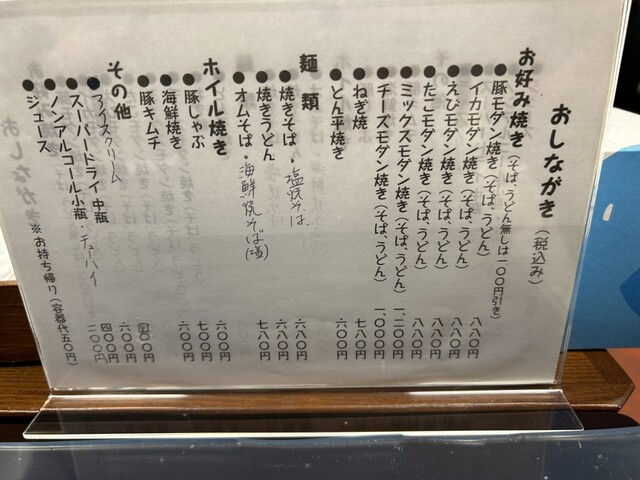 おしながき（税込み）
お好み焼き（そば、うどん無しは一〇〇円引き）
●豚モダン焼き（そば、うどん） 八八〇円
●イカモダン焼き（そば、うどん） 八八〇円
●えびモダン焼き（そば、うどん） 八八〇円
●たこモダン焼き（そば、うどん） 八八〇円
●ミックスモダン焼き（そば、うどん） 一、二〇〇円
●チーズモダン焼き（そば、うどん） 一、〇〇〇円
●ねぎ焼 七八〇円
●とん平焼き 六〇〇円
麺 類
●焼きそば・塩焼そば 六八〇円
●焼きうどん 六八〇円
●オムそば・海鮮焼そば(塩) 七八〇円
ホイル焼き
●豚しゃぶ 六〇〇円
●海鮮焼き 七〇〇円
●豚キムチ 六〇〇円
その他
●アイスクリーム
●スーパードライ 中瓶 六〇〇円
●ノンアルコール小瓶・チューハイ 四〇〇円
●ジュース 二〇〇円
※お持ち帰り（容器代五〇円）